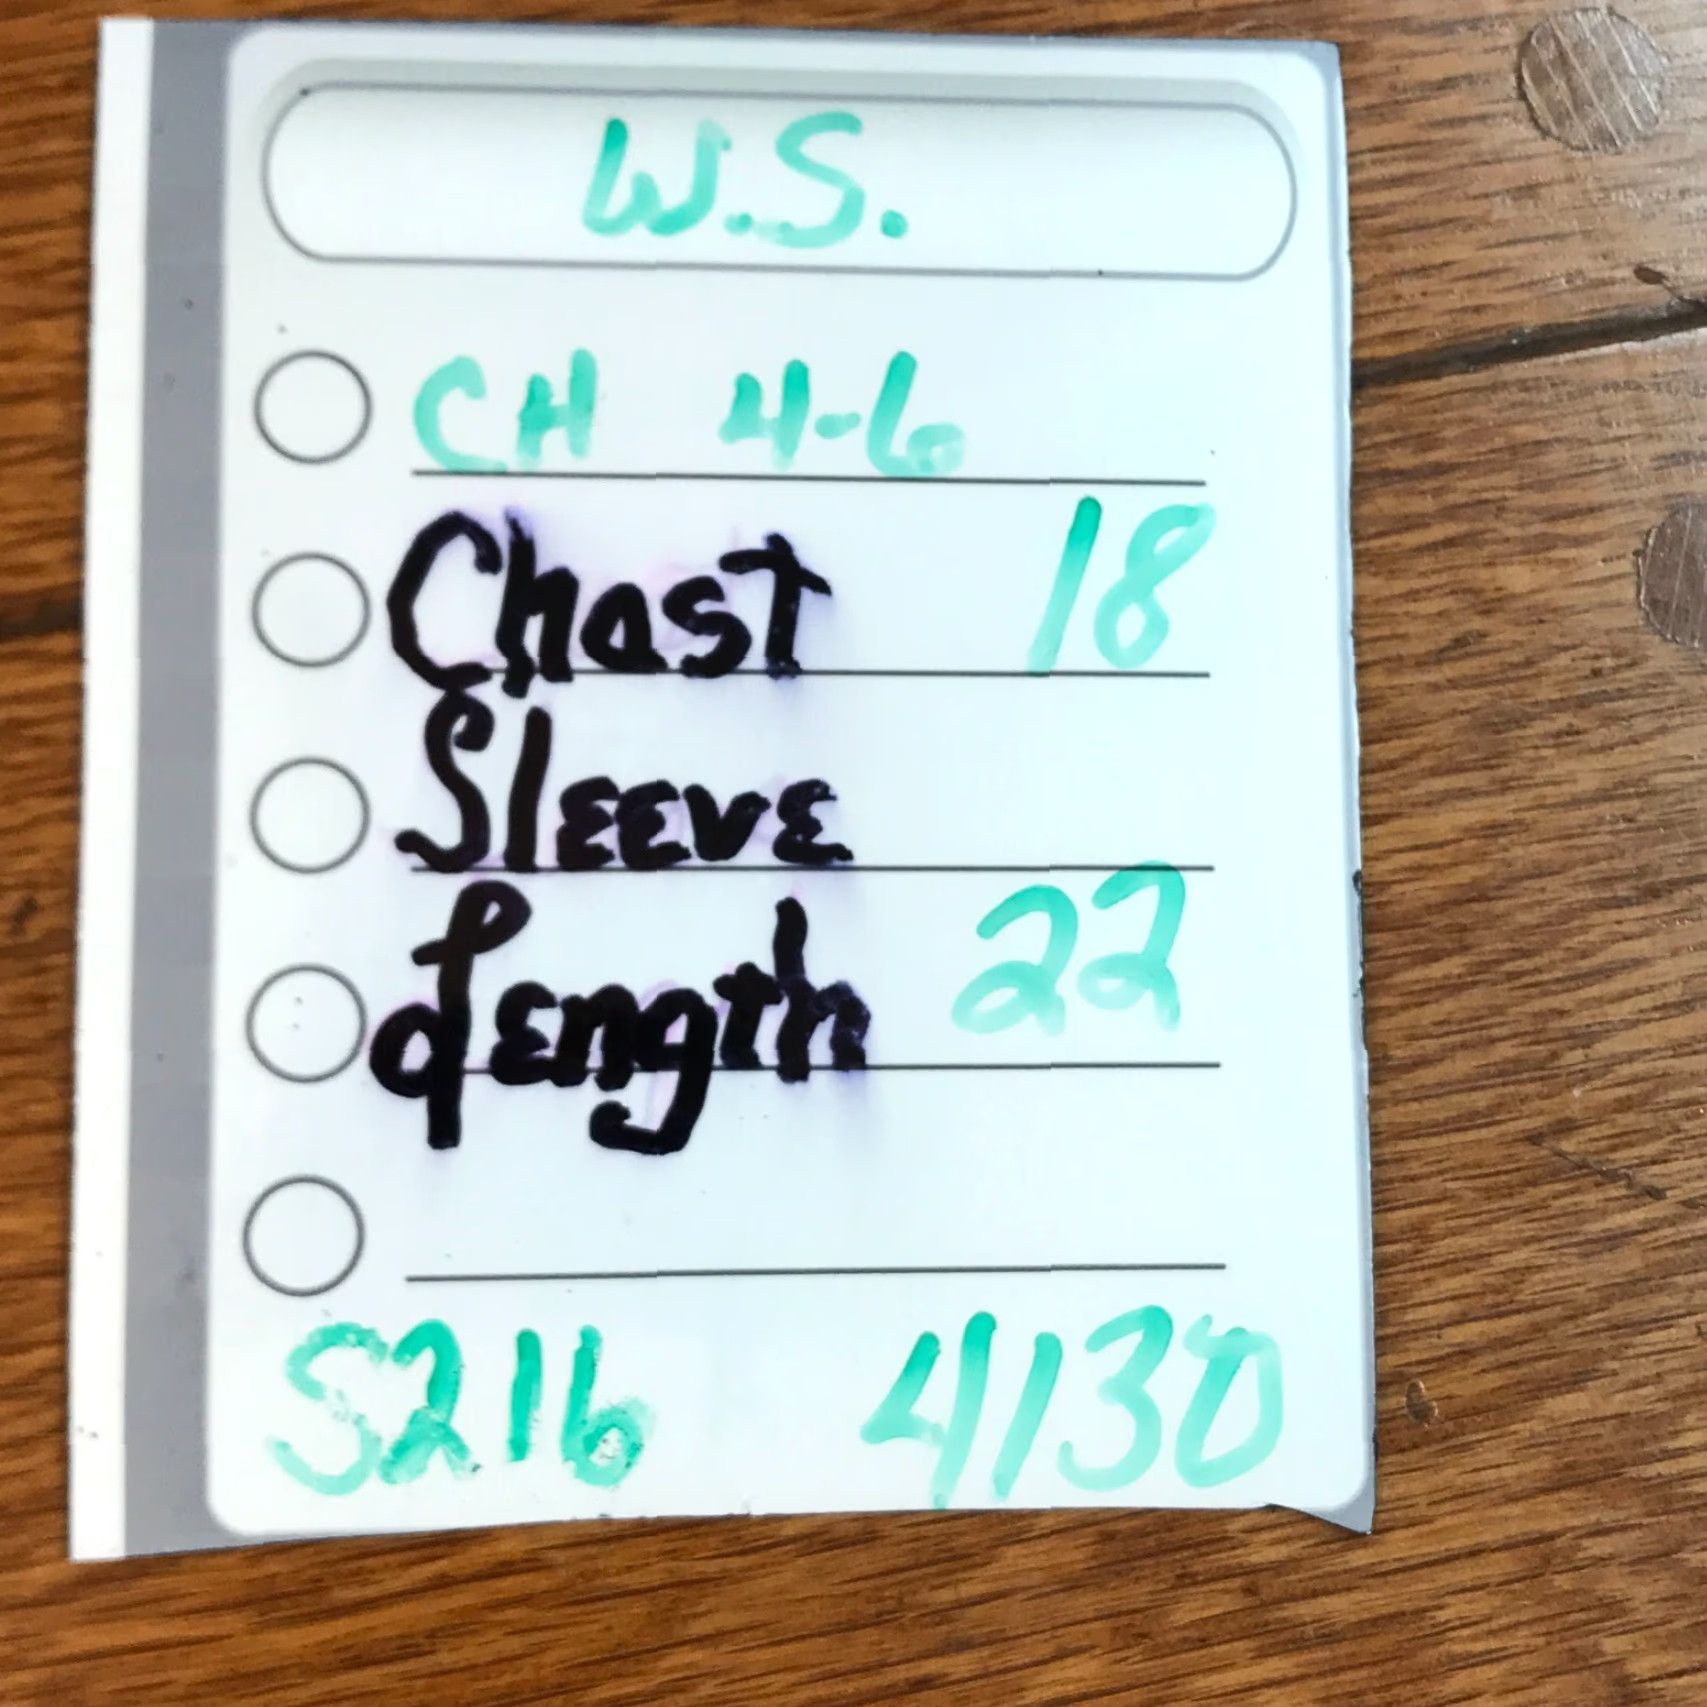 W.S.
CH 4-6
Chast 18
Sleeve
Length 22
S216 4130